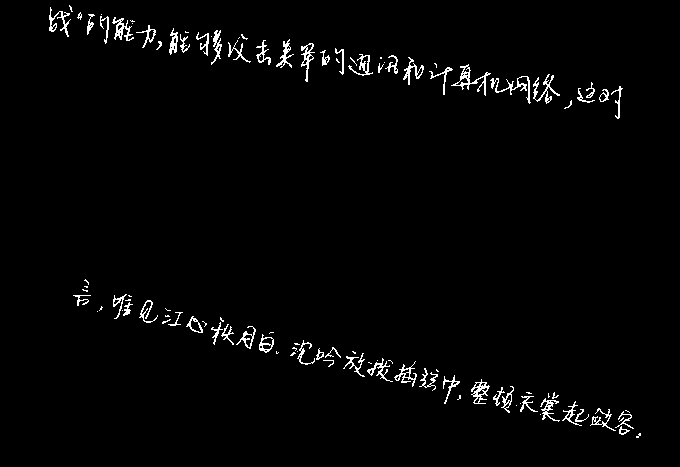 战"的能力,能够反击美军的通讯和计算机网络,这对
言,唯见江心秋月白.沉吟放拨插弦中,整顿衣裳起敛容。